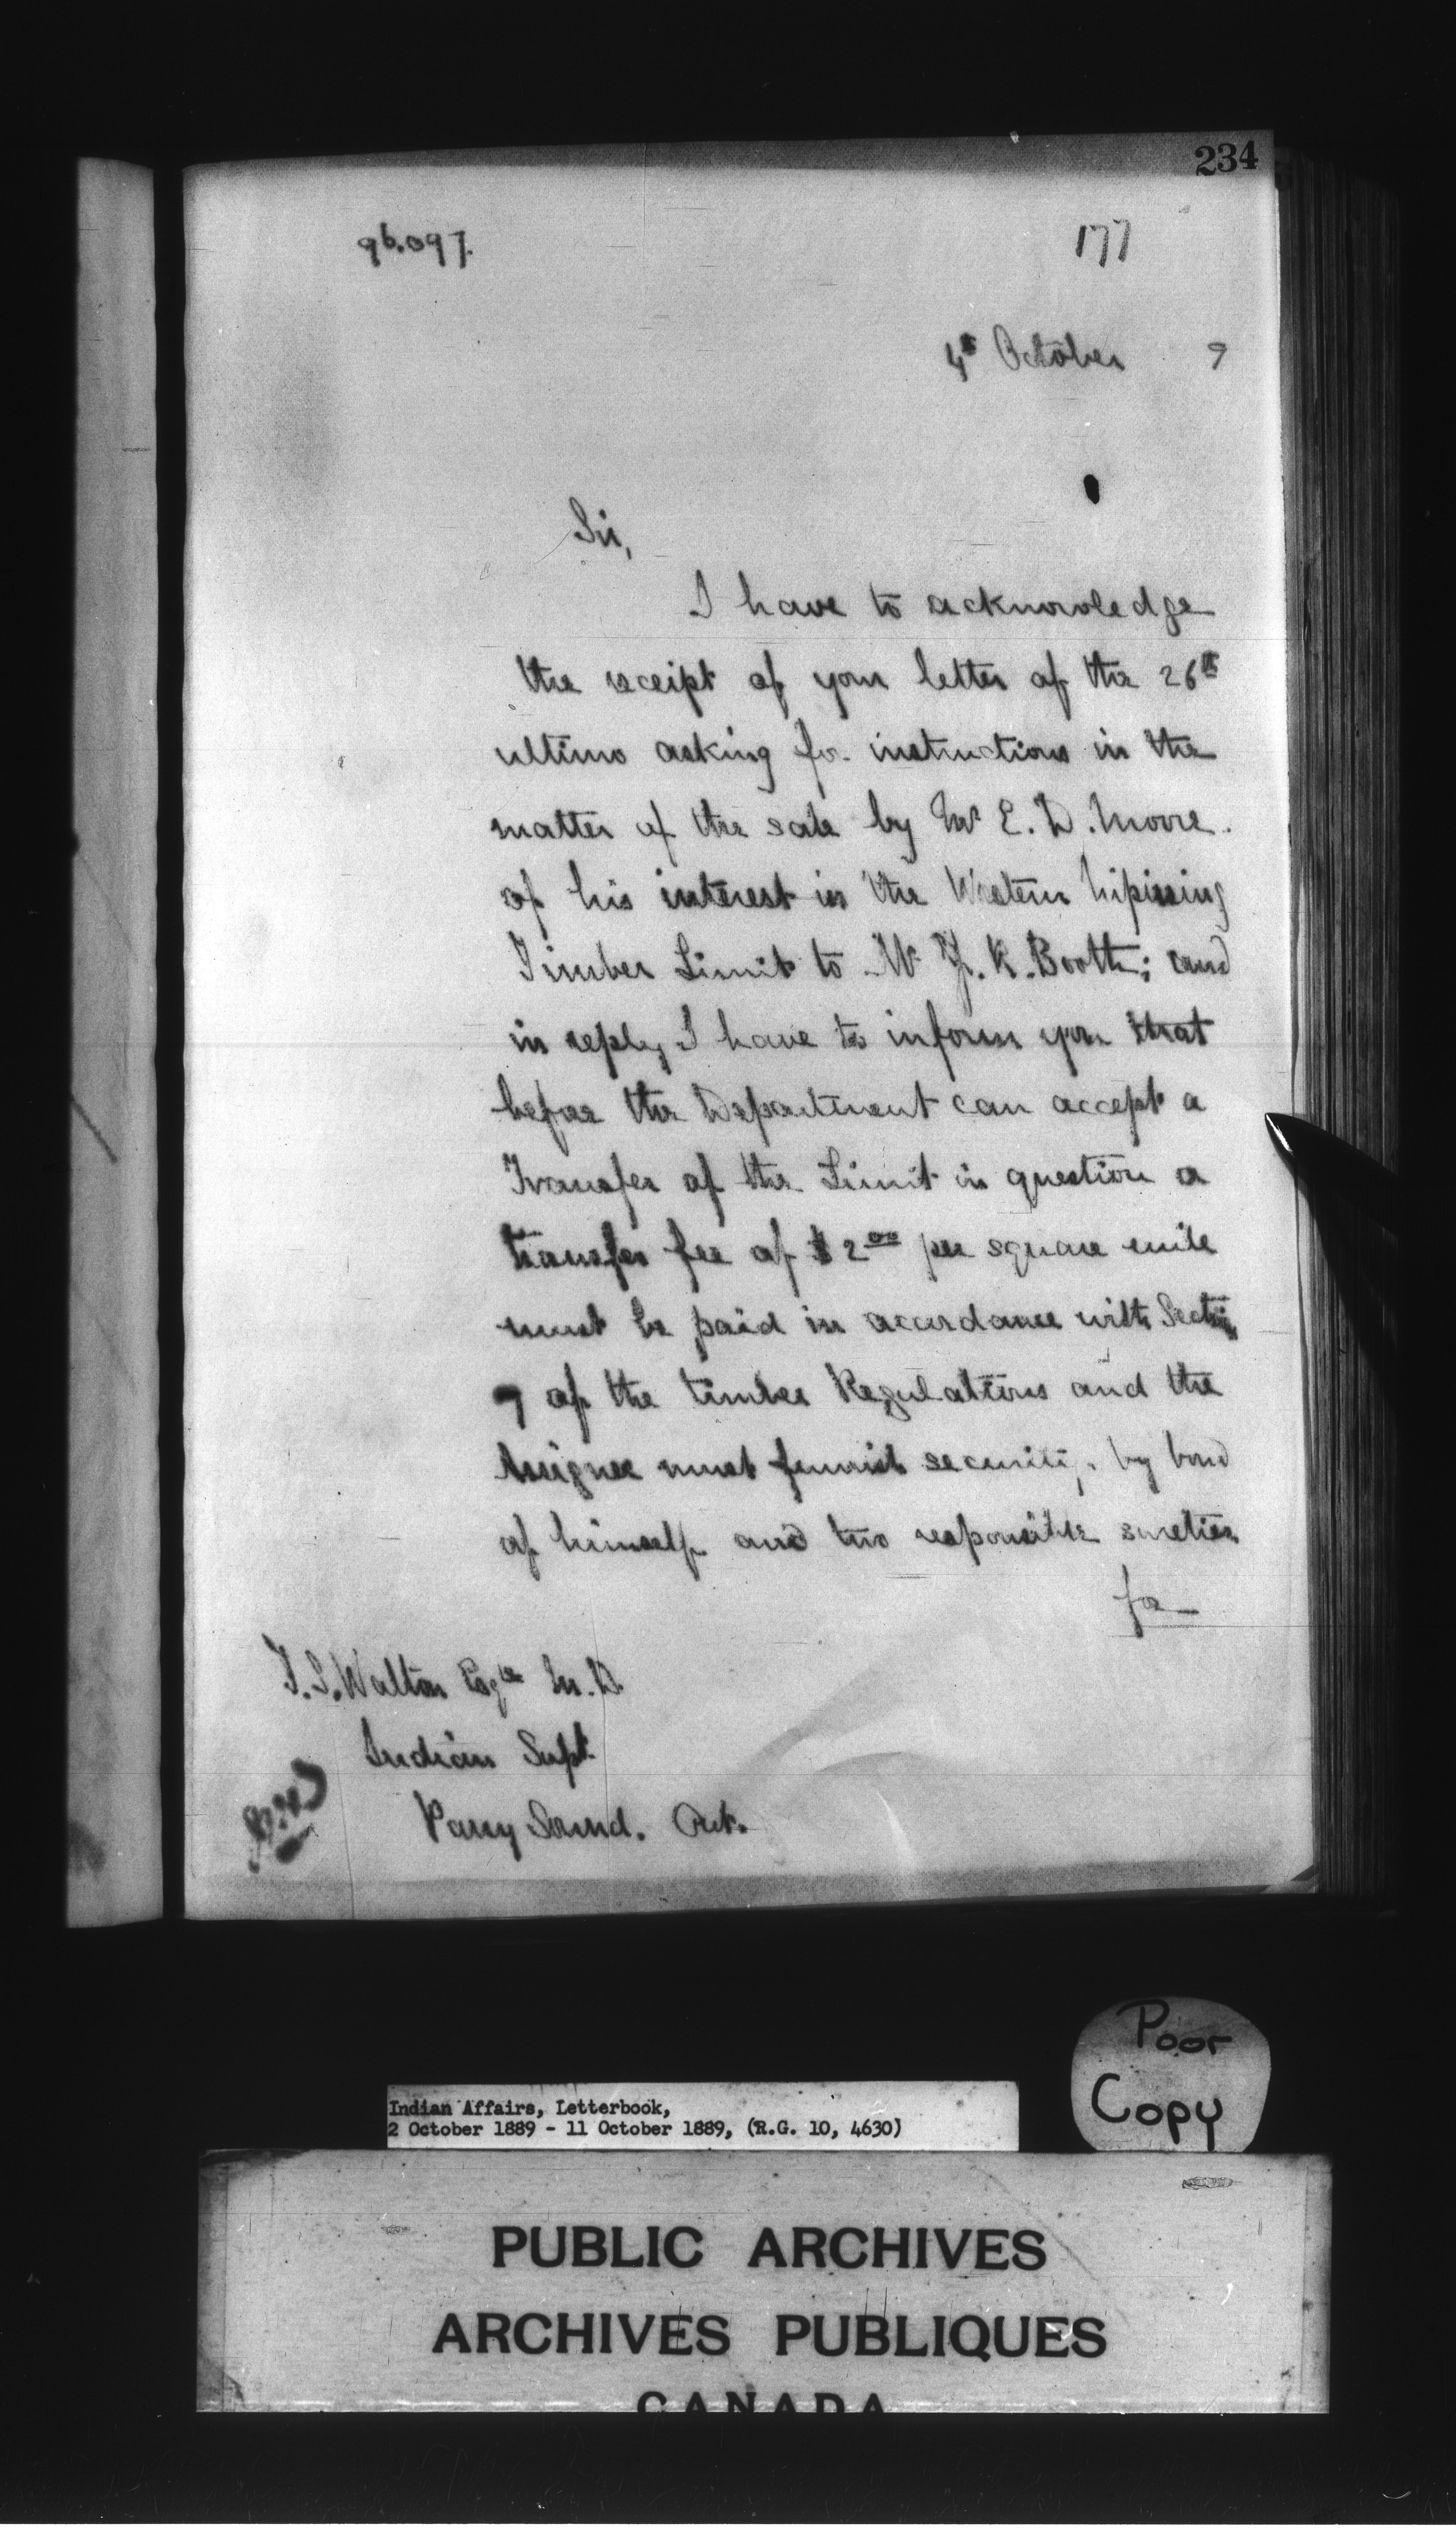 234
96.097.
177
4th October 9
Sir,
I have to acknowledge
the receipt of your letter of the 26th
ultimo asking for instructions in the
matter of the sale by Mr E. D. Moore.
of his interest in the Western Nipissing
Timber Limit to Mr J. R. Booth; and
in reply I have to inform you that
before the Department can accept a
Transfer of the Limit in question a
transfer fee of $2.00 per square mile
must be paid in accordance with Section
7 of the timber Regulations and the
Assignee must furnish security, by bond
of himself and two responsible sureties
for
T. S. Walton Esqre M.D.
Indian Supt.
Parry Sound. Ont.
Poor
Copy
Indian Affairs, Letterbook,
2 October 1889 - 11 October 1889, (R.G. 10, 4630)
PUBLIC ARCHIVES
ARCHIVES PUBLIQUES
CANADA